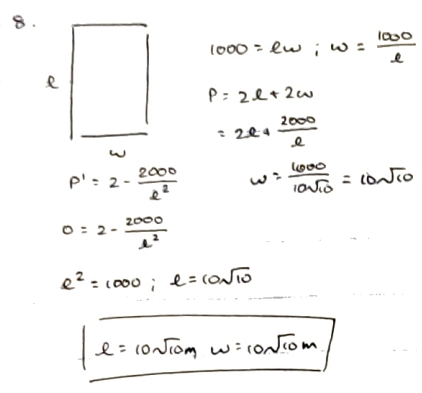 8.
l
w
1000 = lw ; w = 1000/l
P = 2l + 2w
= 2l + 2000/l
P' = 2 - 2000/l²
w = 1000/10√10 = 10√10
0 = 2 - 2000/l²
l² = 1000 ; l = 10√10
l = 10√10m w = 10√10 m